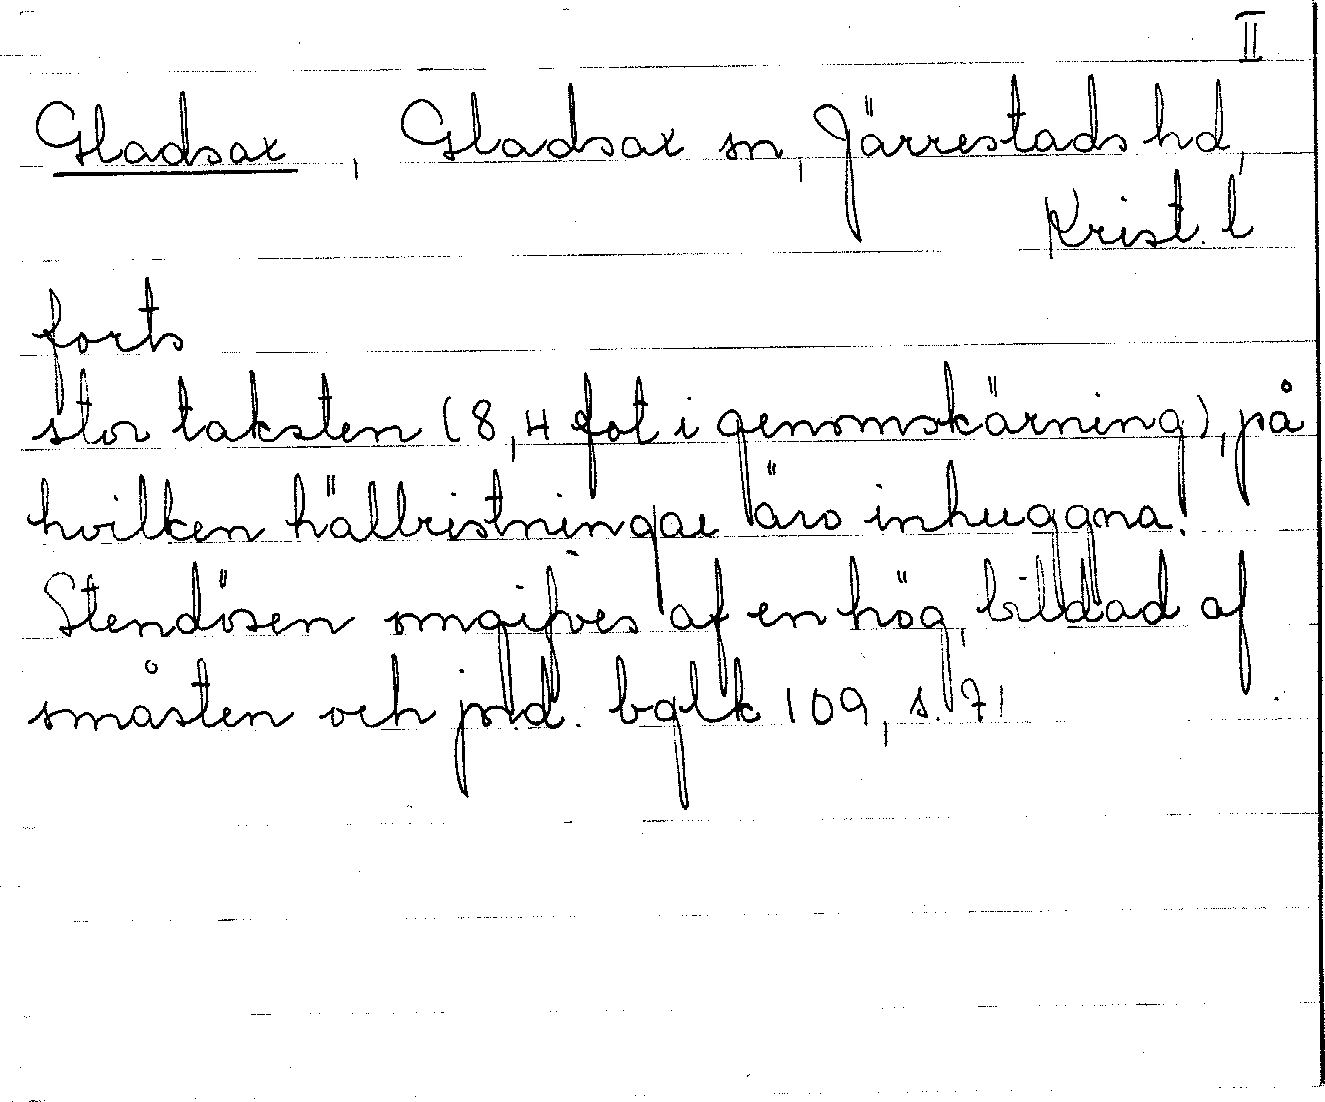 II
Gladsax, Gladsax sn, Järrestads hd,
Krist. l
forts
stor taksten (8,4 fot i genomskärning), på
hvilken hällristningar äro inhuggna!
Stendösen omgifves af en hög, bildad af
småsten och jord. bglk 109, s. 71